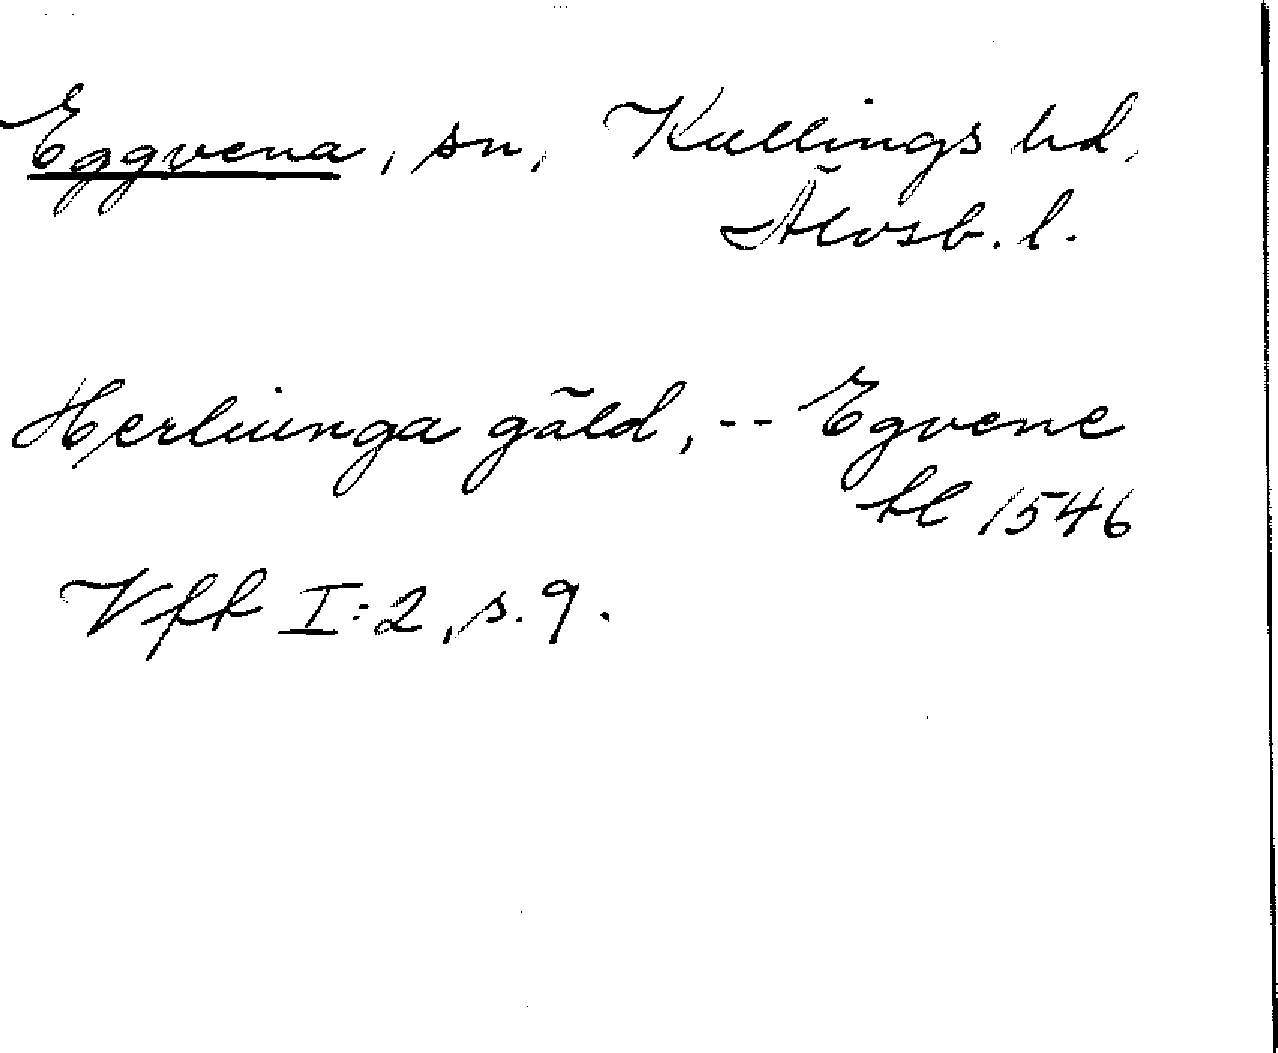 Eggvena, sn, Kullings hd,
Älvsb. l.
Herliunga gäld, -- Egvene
tl 1546
Vff I:2, s. 9.